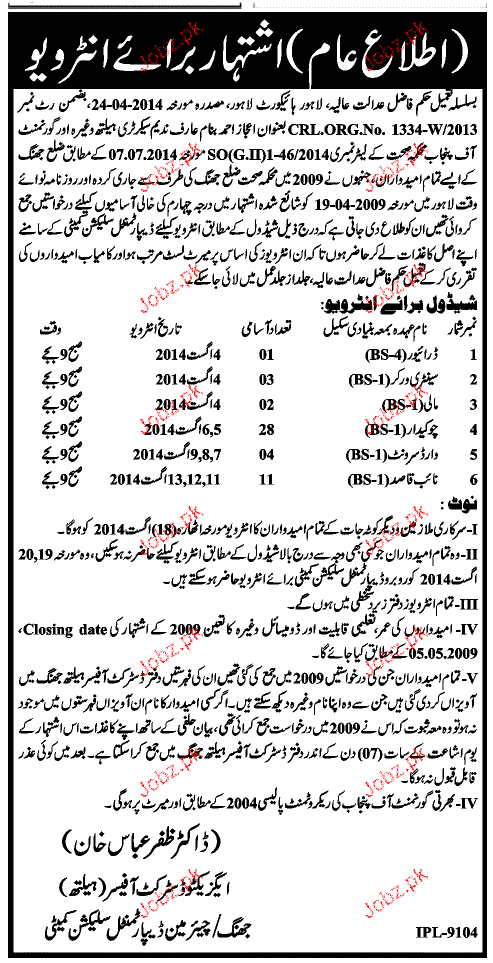 (اطلاع عام) اشتہار برائے انٹرویو
بسلسلہ تعمیل حکم فاضل عدالت عالیہ، لاہور ہائیکورٹ لاہور، مصدرہ مورخہ 24-04-2014، بضمن رٹ نمبر
CRL.ORG.No. 1334-W/2013 بعنوان اعجاز احمد بنام عارف ندیم سیکرٹری ہیلتھ وغیرہ اور گورنمنٹ
آف پنجاب محکمہ صحت کے لیٹر نمبری SO(G.II)1-46/2014 مورخہ 07.07.2014 کے مطابق ضلع جھنگ
کے ایسے تمام امیدواران، جنہوں نے 2009 میں محکمہ صحت ضلع جھنگ کی طرف سے جاری کردہ اور روزنامہ نوائے
وقت لاہور میں مورخہ 19-04-2009 کو شائع شدہ اشتہار میں درجہ چہارم کی خالی آسامیوں کیلئے درخواستیں جمع
کروائی تھیں ان کو اطلاع دی جاتی ہے کہ درج ذیل شیڈول کے مطابق انٹرویو کیلئے ڈیپارٹمنٹل سلیکشن کمیٹی کے سامنے
اپنے اصل کاغذات لے کر حاضر ہوں تاکہ ان انٹرویوز کی اساس پر میرٹ لسٹ مرتب ہو اور کامیاب امیدواروں کی
تقرری کر کے تعمیل حکم فاضل عدالت عالیہ، جلد از جلد عمل میں لائی جا سکے۔
شیڈول برائے انٹرویو:
نمبر شمار نام عہدہ بمعہ بنیادی سکیل تعداد آسامی تاریخ انٹرویو وقت
1 ڈرائیور (BS-4) 01 4 اگست 2014 صبح 9 بجے
2 سینٹری ورکر (BS-1) 03 4 اگست 2014 صبح 9 بجے
3 مالی (BS-1) 02 4 اگست 2014 صبح 9 بجے
4 چوکیدار (BS-1) 28 5,6 اگست 2014 صبح 9 بجے
5 وارڈ سرونٹ (BS-1) 04 7,8,9 اگست 2014 صبح 9 بجے
6 نائب قاصد (BS-1) 11 11,12,13 اگست 2014 صبح 9 بجے
نوٹ:
I- سرکاری ملازمین و دیگر کوٹہ جات کے تمام امیدواران کا انٹرویو مورخہ اٹھارہ (18) اگست 2014 کو ہوگا۔
II- وہ تمام امیدواران جو کسی بھی وجہ سے درج بالا شیڈول کے مطابق انٹرویو کیلئے حاضر نہ ہو سکیں، وہ مورخہ 20,19
اگست 2014 کو روبرو ڈیپارٹمنٹل سلیکشن کمیٹی برائے انٹرویو حاضر ہو سکتے ہیں۔
III- تمام انٹرویوز دفتر زیر دستخطی میں ہوں گے۔
IV- امیدواروں کی عمر، تعلیمی قابلیت اور ڈومیسائل وغیرہ کا تعین 2009 کے اشتہار کی Closing date،
05.05.2009 کے مطابق کیا جائے گا۔
V- تمام امیدواران جن کی درخواستیں 2009 میں جمع کی گئی تھیں ان کی فہرستیں دفتر ڈسٹرکٹ آفیسر ہیلتھ جھنگ میں
آویزاں کر دی گئی ہیں جن سے وہ اپنا نام وغیرہ دیکھ سکتے ہیں۔ اگر کسی امیدوار کا نام ان آویزاں فہرستوں میں موجود
نہ ہو تو وہ معہ ثبوت کہ اس نے 2009 میں درخواست جمع کرائی تھی، بیان حلفی کے ساتھ اپنے کاغذات اس اشتہار کے
یوم اشاعت کے سات (07) دن کے اندر دفتر ڈسٹرکٹ آفیسر ہیلتھ جھنگ میں جمع کرا سکتا ہے۔ بعد میں کوئی عذر
قابل قبول نہ ہوگا۔
IV- بھرتی گورنمنٹ آف پنجاب کی ریکروٹمنٹ پالیسی 2004 کے مطابق اور میرٹ پر ہوگی۔
(ڈاکٹر ظفر عباس خان)
ایگزیکٹو ڈسٹرکٹ آفیسر (ہیلتھ)
جھنگ/چیئرمین ڈیپارٹمنٹل سلیکشن کمیٹی
IPL-9104
Jobz.pk